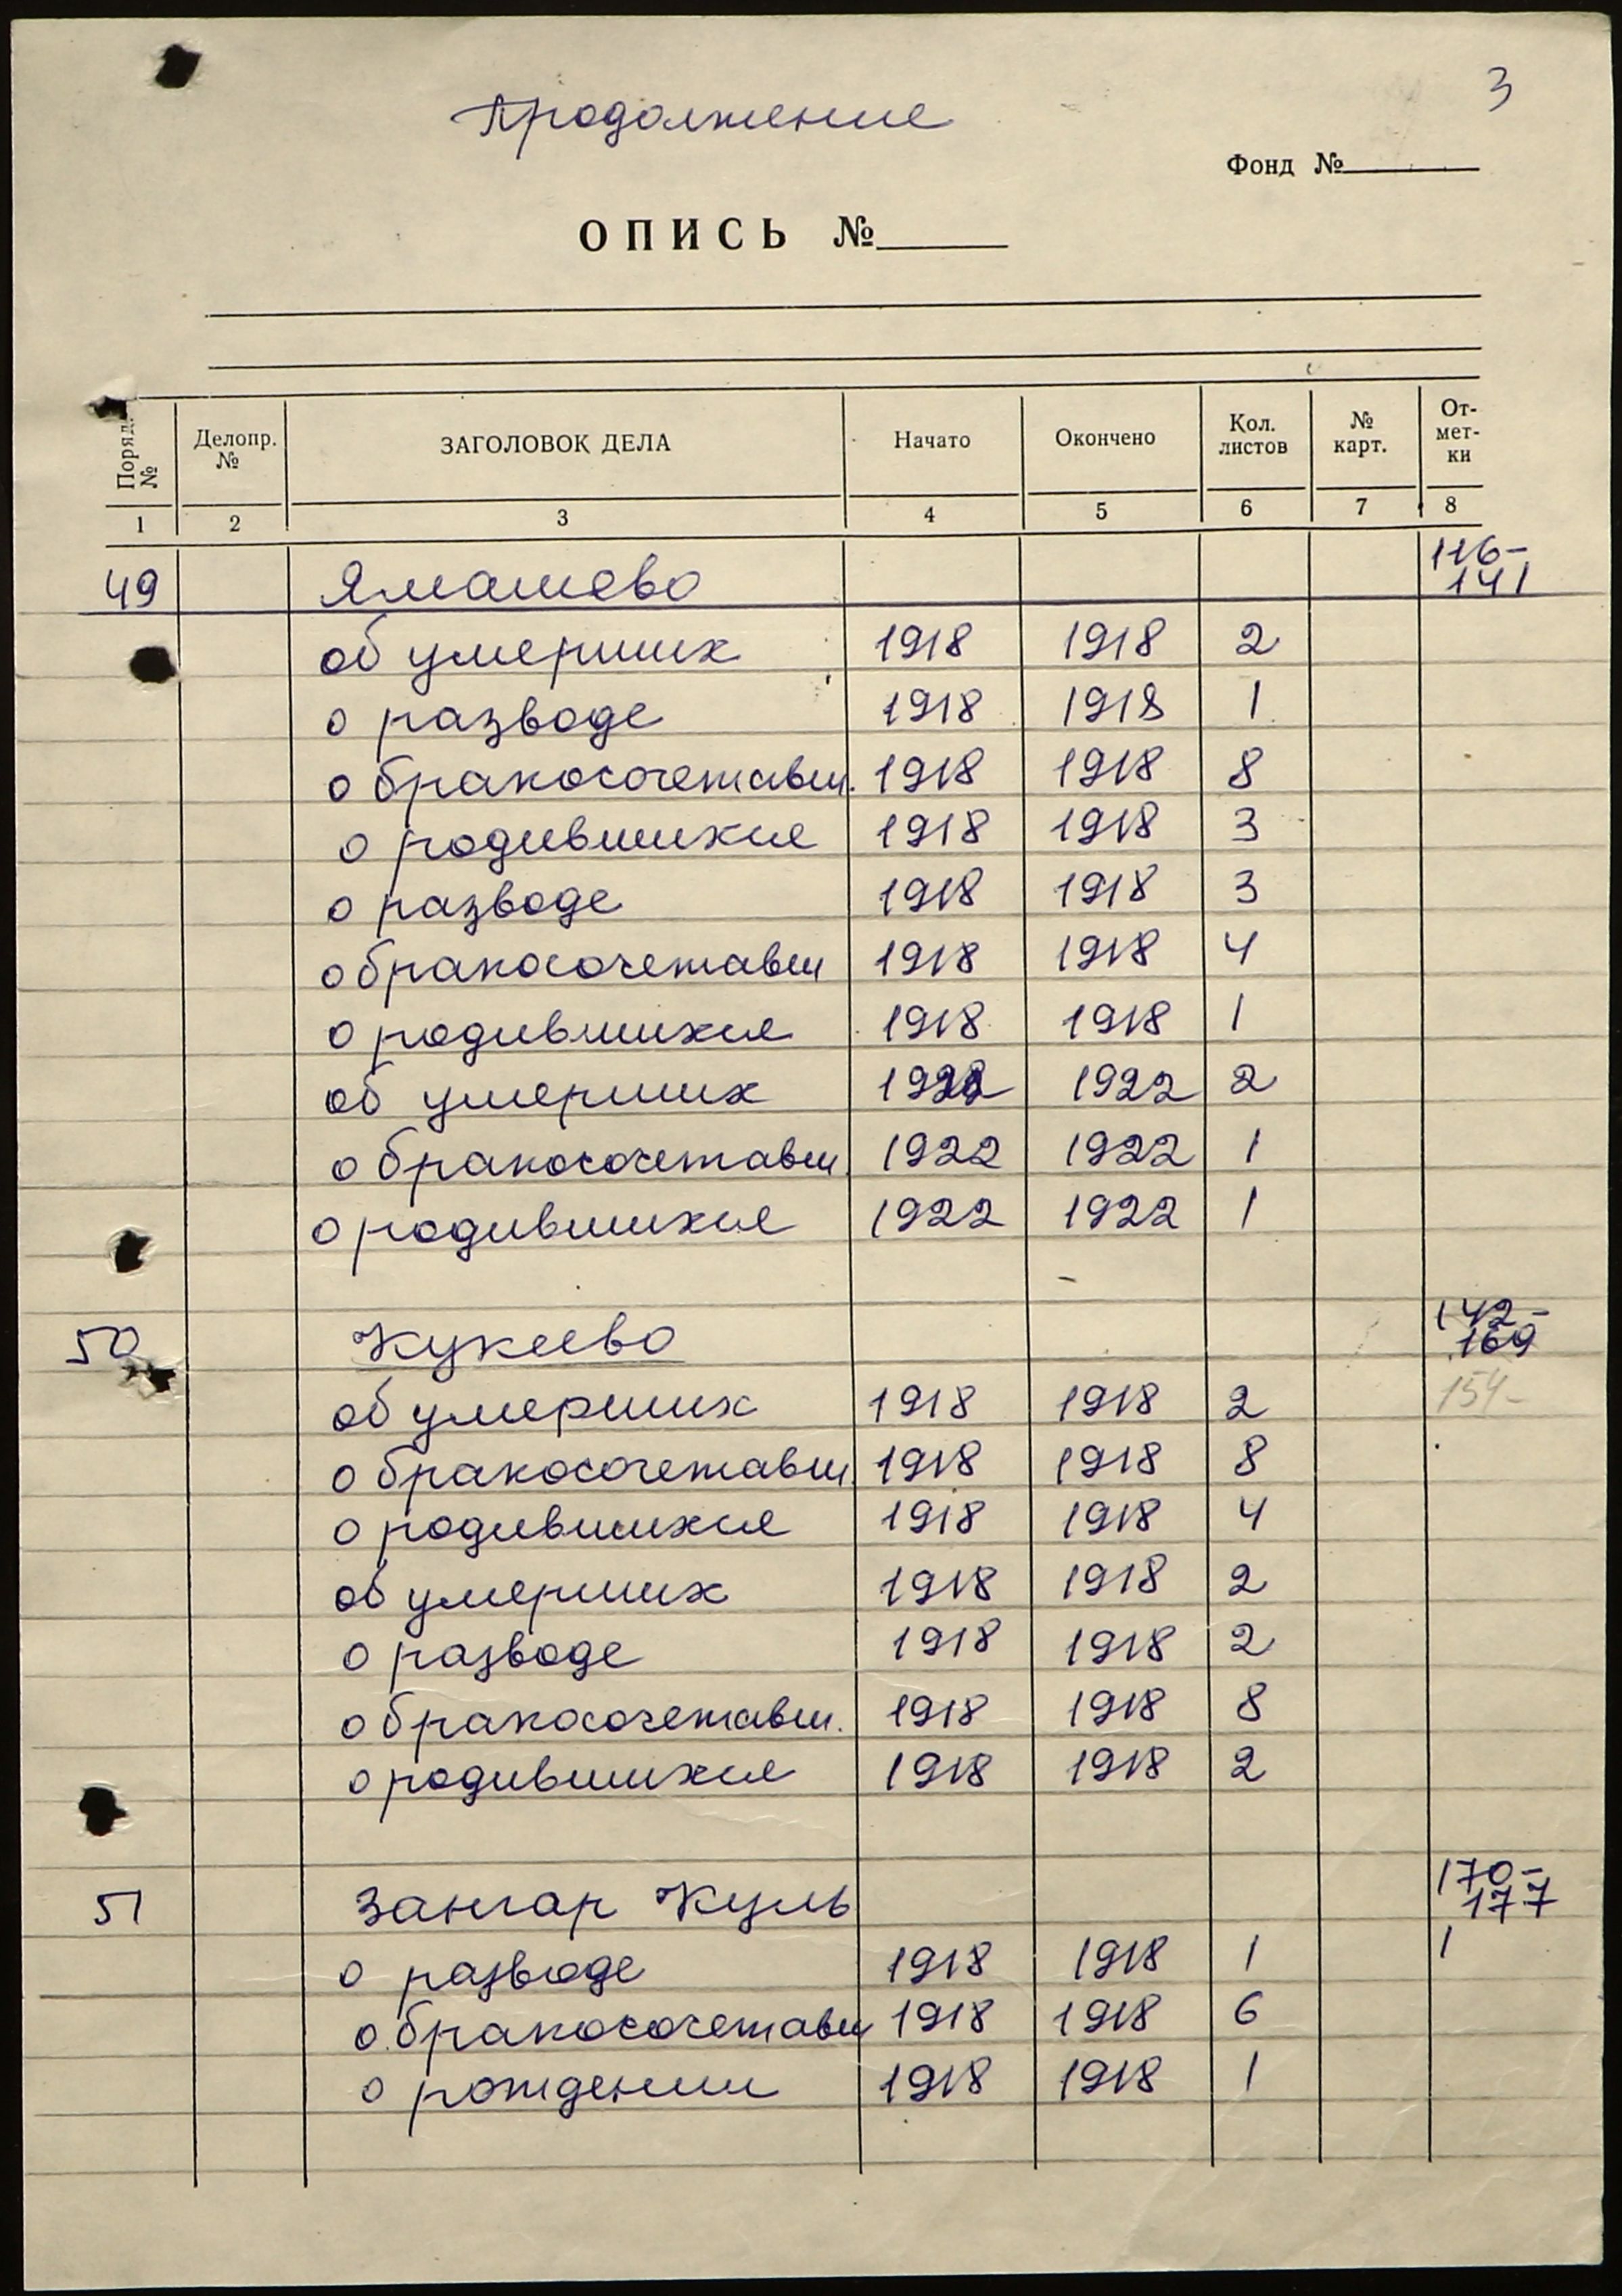 3
Продолжение
Фонд №
ОПИСЬ №
Поряд. № Делопр. № ЗАГОЛОВОК ДЕЛА Начато Окончено Кол. листов № карт. От-мет-ки
1 2 3 4 5 6 7 8
49 Ямашево 116-141
об умерших 1918 1918 2
о разводе 1918 1918 1
о бракосочетавш. 1918 1918 8
о родившихся 1918 1918 3
о разводе 1918 1918 3
о бракосочетавш 1918 1918 4
о родившихся 1918 1918 1
об умерших 1922 1922 2
о бракосочетавш. 1922 1922 1
о родившихся 1922 1922 1
50 Кукеево 142-169
об умерших 1918 1918 2 154-
о бракосочетавш. 1918 1918 8
о родившихся 1918 1918 4
об умерших 1918 1918 2
о разводе 1918 1918 2
о бракосочетавш. 1918 1918 8
о родившихся 1918 1918 2
51 Зангар Куль 170-177
о разводе 1918 1918 1 1
о бракосочетавш 1918 1918 6
о рождении 1918 1918 1